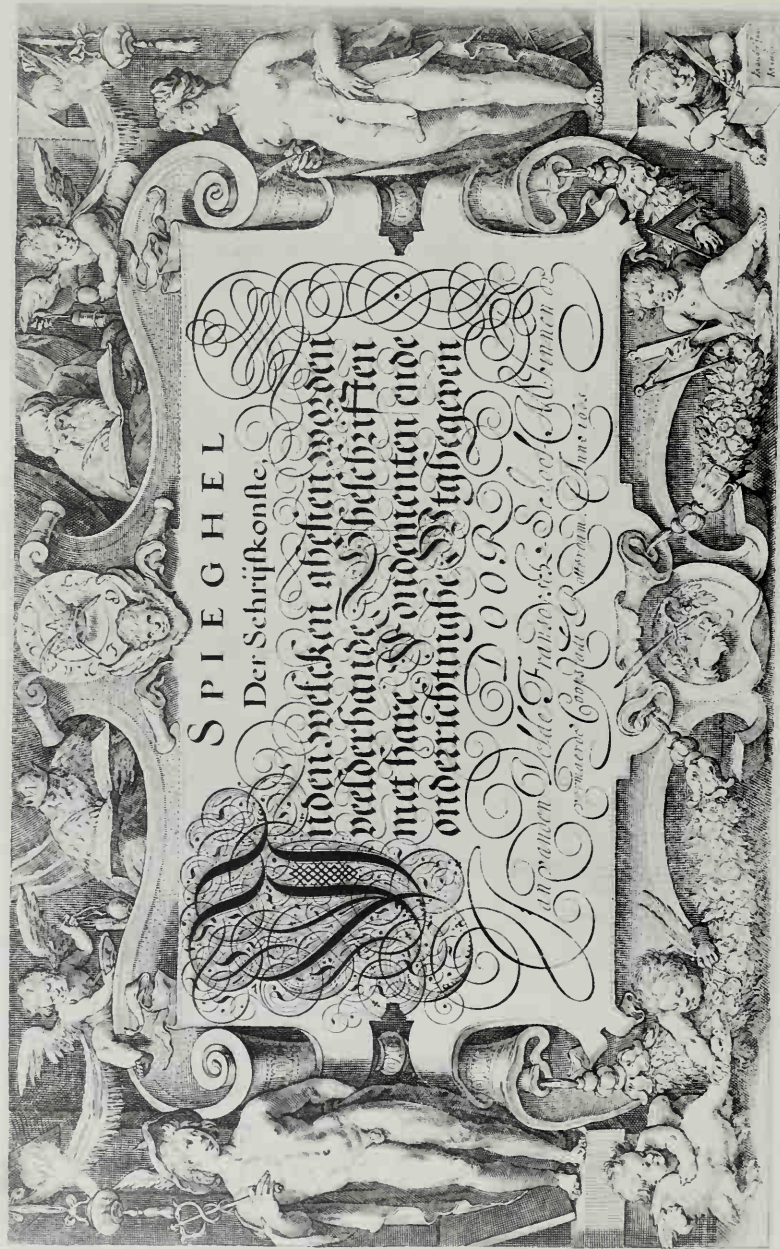 SPIEGHEL
Der Schrijfkonste,
Inden welcken ghesien worden
veelderhande Gheschriften
met hare Fondementen ende
onderrichtinghe Wtghegeven
DOOR
Jan vanden Velde Fransoysch-School
vermaerde Coopstadt Rotterdam. Anno 1605